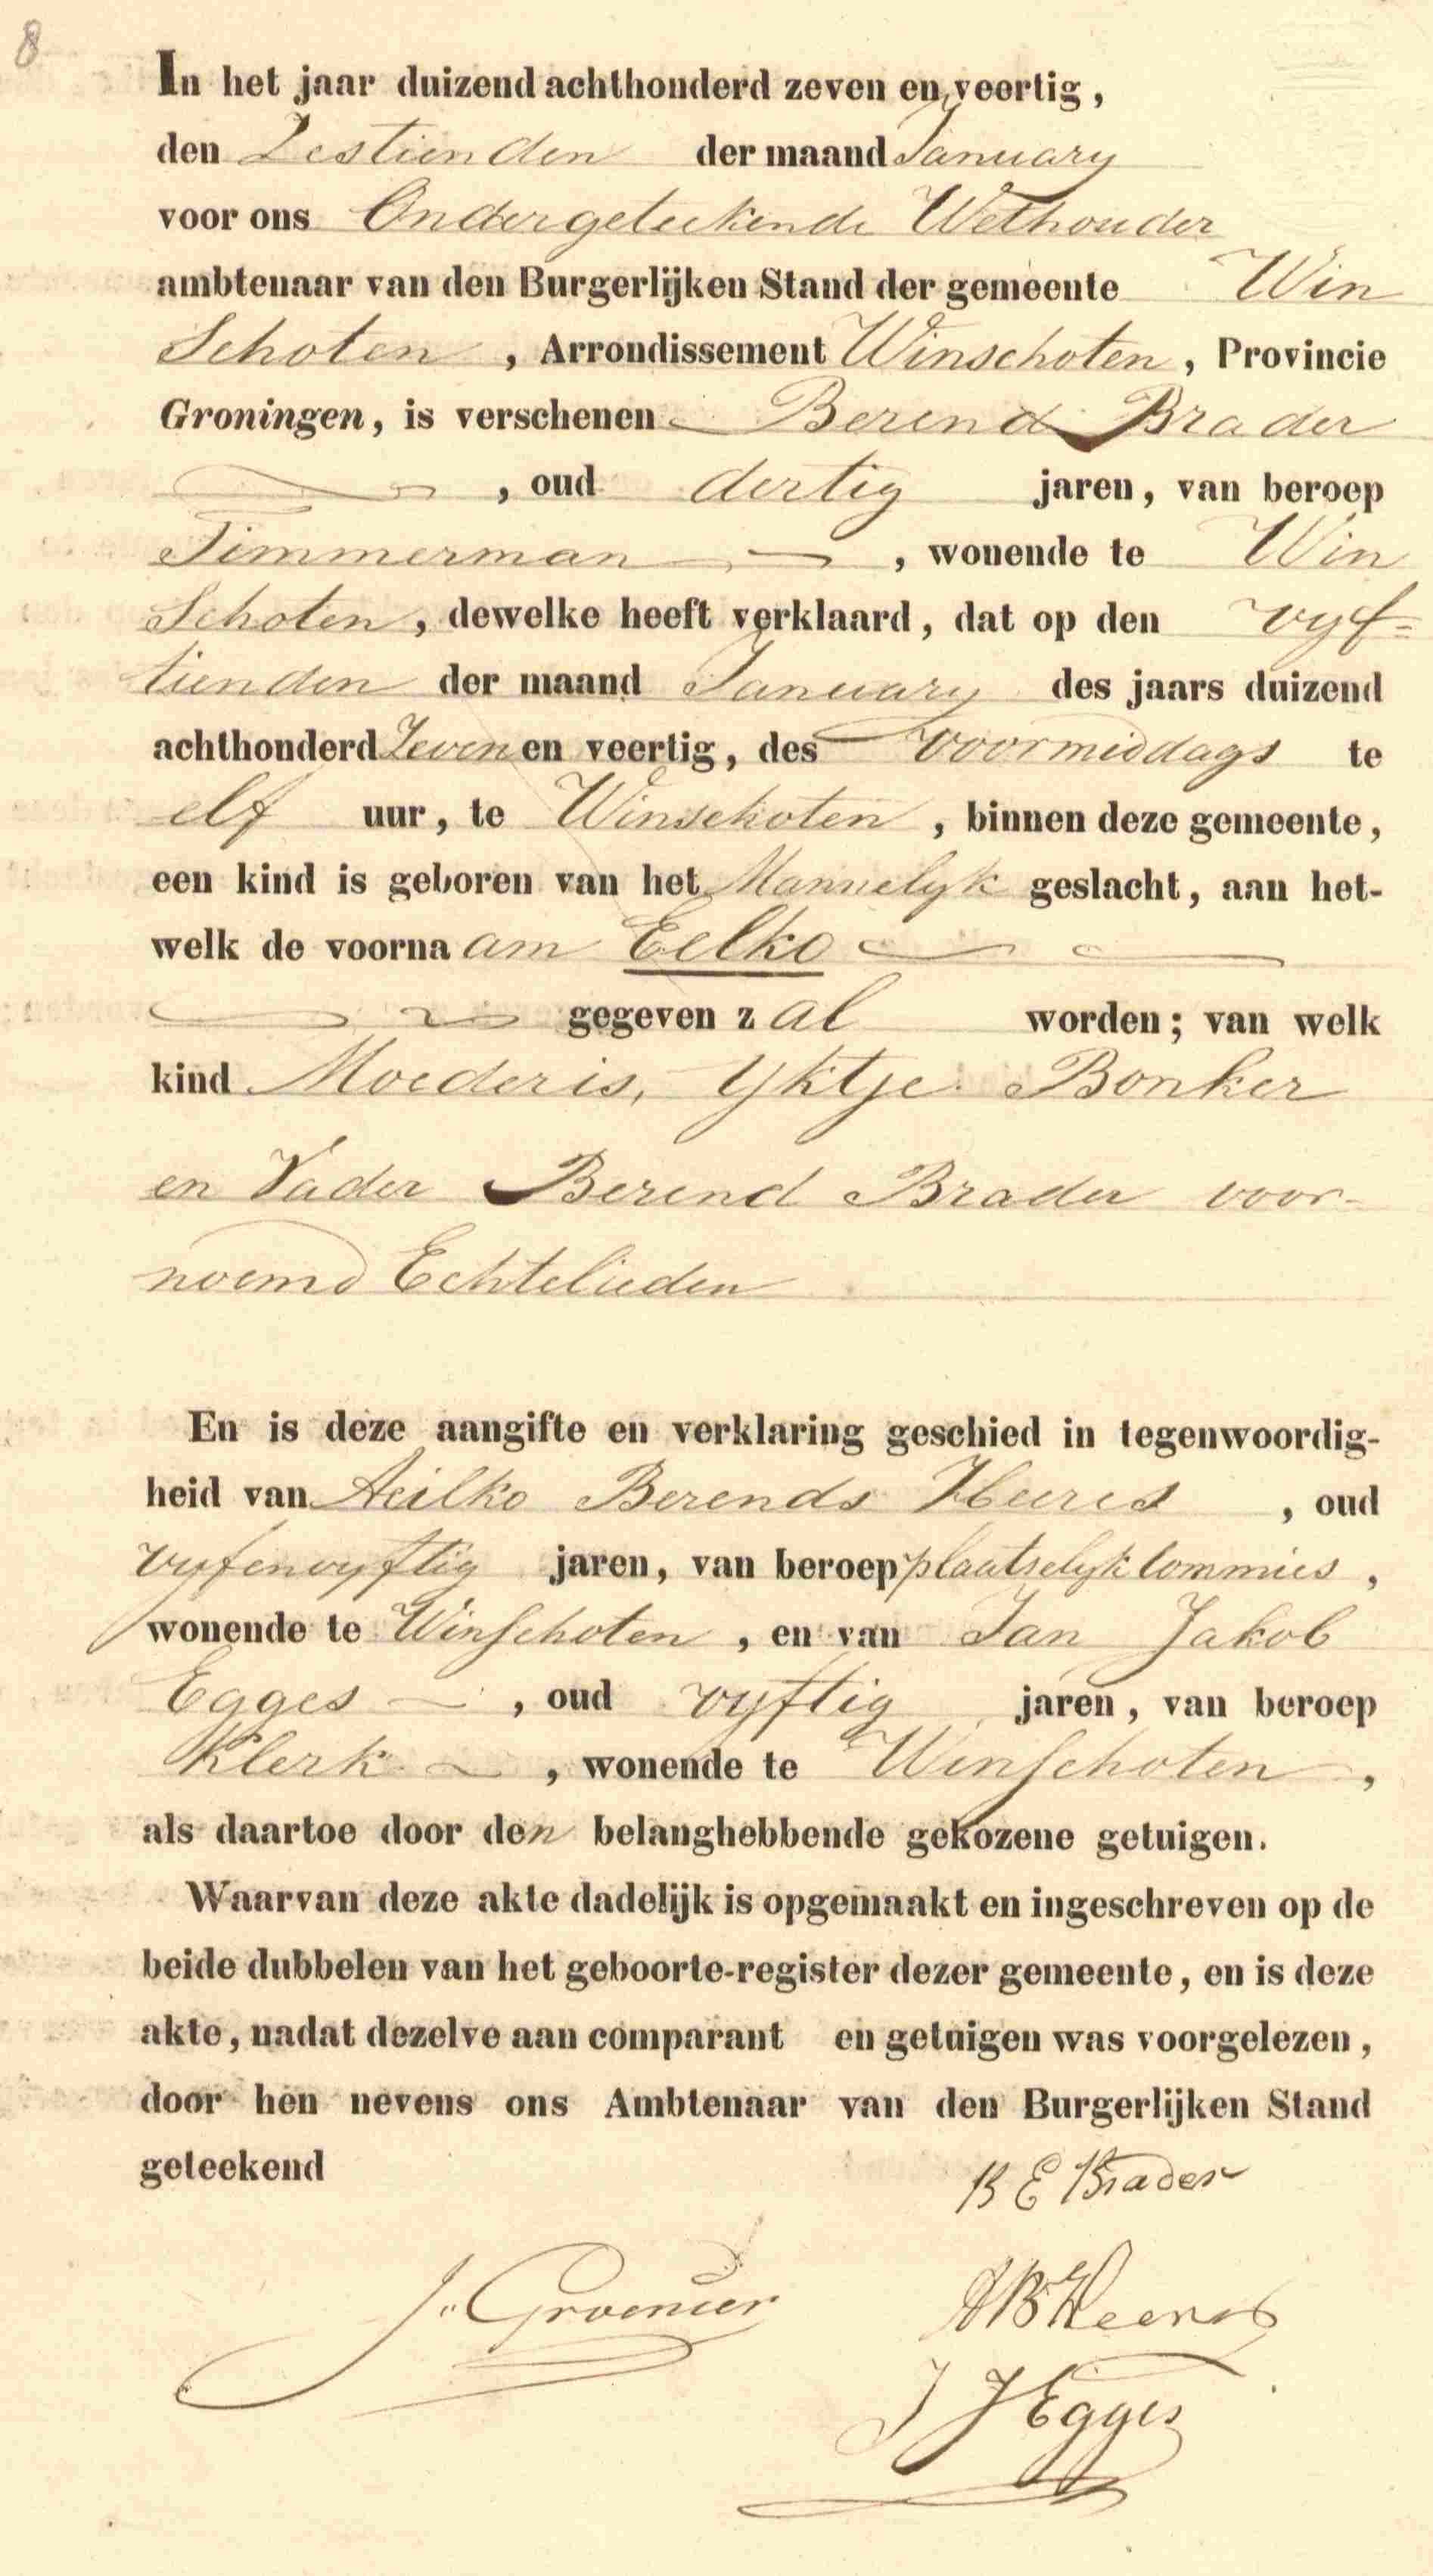 8
In het jaar duizend achthonderd zeven en veertig,
den Zestienden der maand January
voor ons Ondergeteekende Wethouder
ambtenaar van den Burgerlijken Stand der gemeente Win
Schoten, Arrondissement Winschoten, Provincie
Groningen, is verschenen Berend Brader
, oud dertig jaren, van beroep
Timmerman, wonende te Win
Schoten, dewelke heeft verklaard, dat op den vyf=
tienden der maand January des jaars duizend
achthonderd Zeven en veertig, des voormiddags te
elf uur, te Winschoten, binnen deze gemeente,
een kind is geboren van het Mannelyk geslacht, aan het-
welk de voornaam Eelko
gegeven zal worden; van welk
kind Moeder is, Yktje Bonker
en Vader Berend Brader voor-
noemd Echtelieden
En is deze aangifte en verklaring geschied in tegenwoordig-
heid van Aeilko Berends Heeres, oud
vyfenvyftig jaren, van beroep plaatselyk Commies,
wonende te Winschoten, en van Jan Jakob
Egges, oud vyftig jaren, van beroep
Klerk, wonende te Winschoten,
als daartoe door den belanghebbende gekozene getuigen.
Waarvan deze akte dadelijk is opgemaakt en ingeschreven op de
beide dubbelen van het geboorte-register dezer gemeente, en is deze
akte, nadat dezelve aan comparant en getuigen was voorgelezen,
door hen nevens ons Ambtenaar van den Burgerlijken Stand
geteekend
B E Brader
J. Groenier
A B Heeres
J J Egges